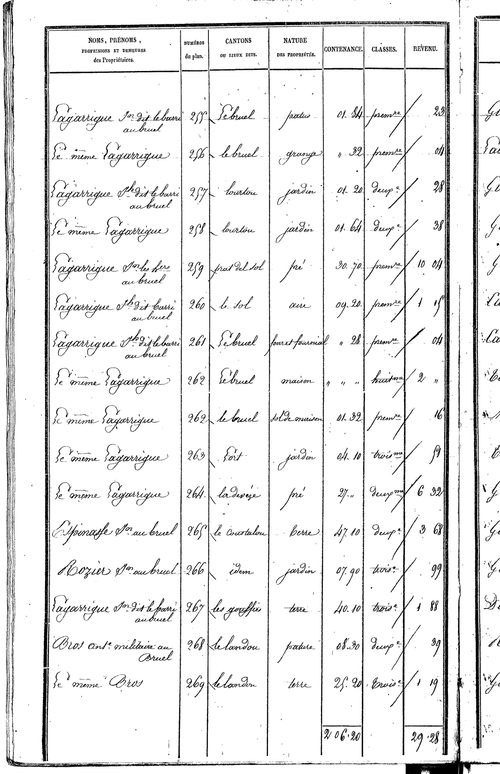 NOMS, PRÉNOMS, PROFESSIONS ET DEMEURES des Propriétaires. NUMÉROS du plan. CANTONS OU LIEUX DITS. NATURE DES PROPRIÉTÉS. CONTENANCE. CLASSES. REVENU.
Lagarrigue Jn dit le barri au bruel 255 Le bruel patus 01.34 premre 23
Le même Lagarrigue 256 le bruel grange " 32 premre 04
Lagarrigue dit le barri au bruel 257 lourtou jardin 01.20 deuxe 28
Le même Lagarrigue 258 lourtou jardin 01.64 deuxe 38
Lagarrigue Jn au bruel 259 prat del sol pré 30.70 premre 10 04
Lagarrigue dit barri au bruel 260 le sol aire 09.20 premre 1 15
Lagarrigue dit le barri au bruel 261 Le bruel four et fournial " 28 premre 04
Le même Lagarrigue 262 Le bruel maison " " " huitme 2 "
Le même Lagarrigue 262 le bruel sol de maison 01.32 premre 16
Le même Lagarrigue 263 L'ort jardin 04.10 troisme 51
Le même Lagarrigue 264 la devèze pré 27." deuxme 6 32
Espinasse Jn au bruel 265 le courtalou terre 47.10 deuxe 3 68
Rozier Jn au bruel 266 idem jardin 07.90 troise 99
Lagarrigue Jn dit le barri au bruel 267 les gouffiés terre 40.10 troise 1 88
Bros antne militaire au Bruel 268 le landou pature 08.30 deuxe 39
Le même Bros 269 le landou terre 25.20 troise 1 19
2 06.20 29.28